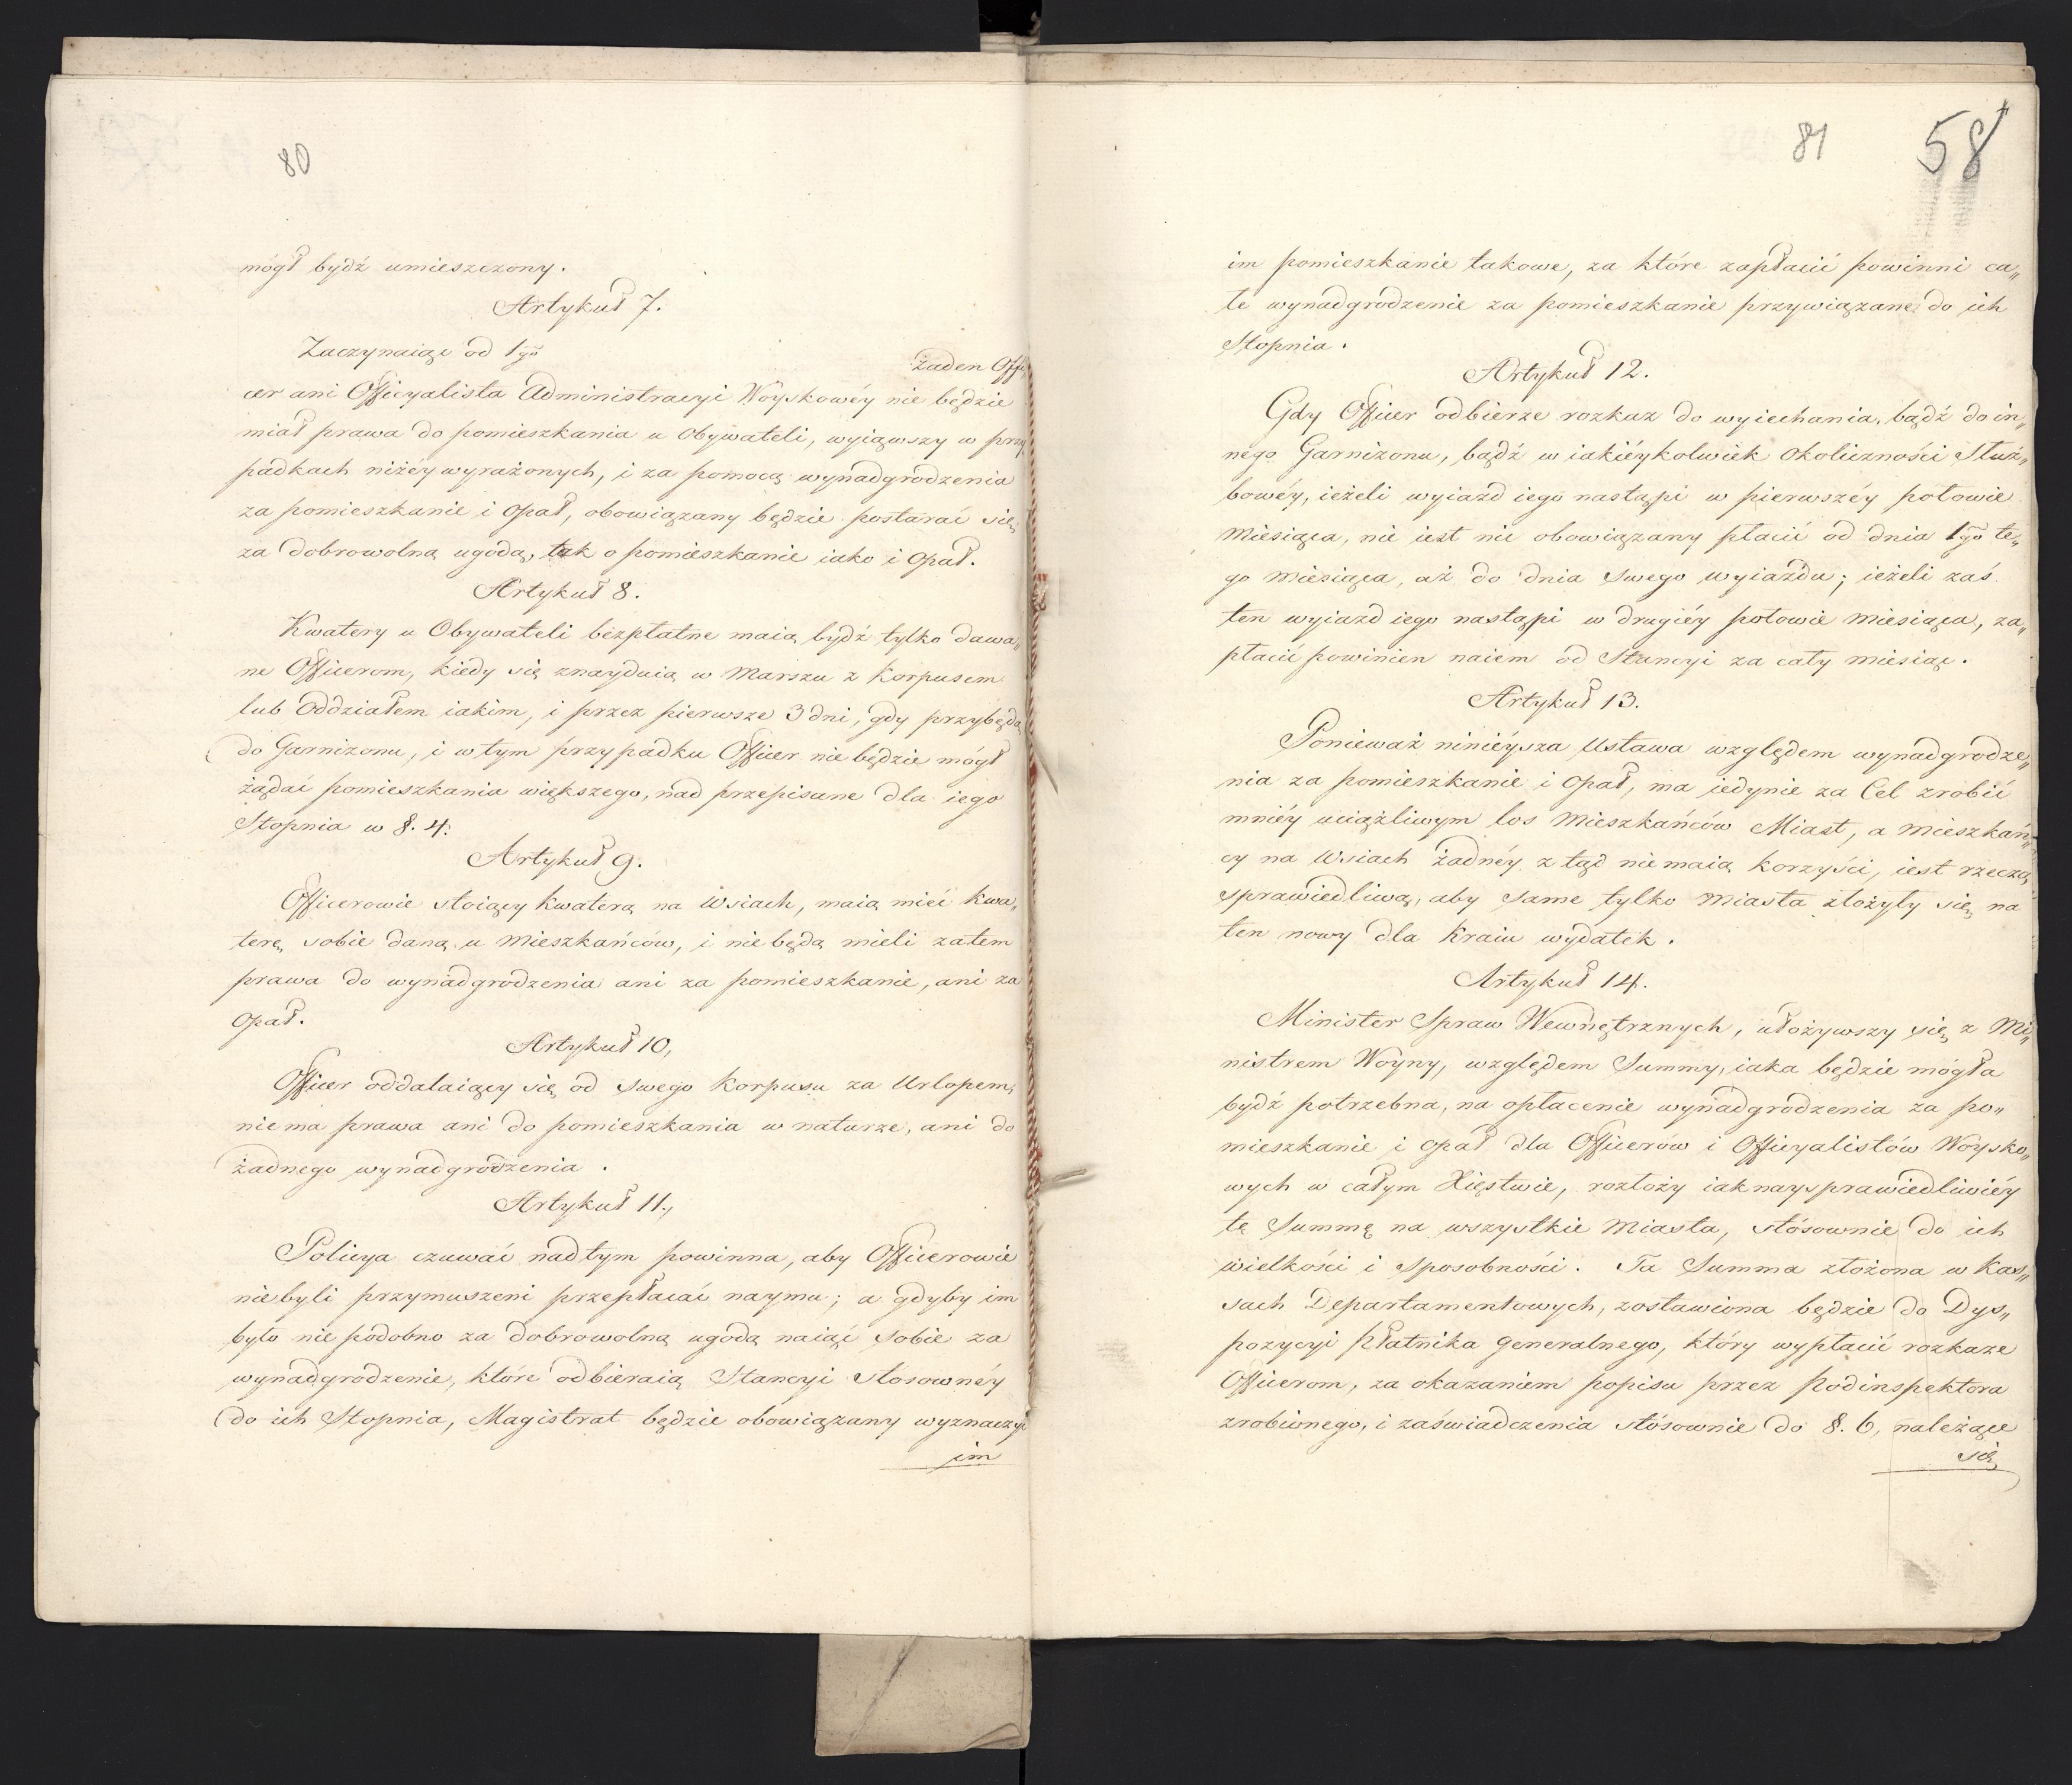 80
mógł bydź umieszczony.
Artykuł 7.
Zaczynaiąc od 1go żaden Offi„
cer ani Officyalista Administracyi Woyskowéy nie będzie
miał prawa do pomieszkania u Obywateli, wyiąwszy w przy„
padkach niżéy wyrażonych, i za pomocą wynadgrodzenia
za pomieszkanie i Opał, obowiązany będzie postarać się,
za dobrowolną ugodą, tak o pomieszkanie iako i Opał.
Artykuł 8.
Kwatery u Obywateli bezpłatne maią bydź tylko dawa„
ne Officerom, kiedy się znayduią w Marszu z Korpusem
lub Oddziałem iakim, i przez pierwsze 3 dni, gdy przybędą
do Garnizonu, i w tym przypadku Officer nie będzie mógł
żądać pomieszkania większego, nad przepisane dla iego
Stopnia w §. 4.
Artykuł 9.
Officerowie stoiący kwaterą na Wsiach, maią mieć kwa„
terę sobie daną u Mieszkańców, i nie będą mieli zatem
prawa do wynadgrodzenia ani za pomieszkanie, ani za
Opał.
Artykuł 10,
Officer oddalaiący się od swego Korpusu za Urlopem,
nie ma prawa ani do pomieszkania w naturze, ani do
żadnego wynadgrodzenia.
Artykuł 11.,
Policya czuwać nad tym powinna, aby Officerowie
nie byli przymuszeni przepłacać naymu; a gdyby im
było nie podobno za dobrowolną ugodą naiąć sobie za
wynadgrodzenie, które odbieraią Stancyi stosownéy
do ich Stopnia, Magistrat będzie obowiązany wyznaczyć
im
81
58
im pomieszkanie takowe, za które zapłacić powinni ca„
łe wynadgrodzenie za pomieszkanie przywiązane do ich
Stopnia.
Artykuł 12.
Gdy Officer odbierze rozkaz do wyiechania, bądź do in„
nego Garnizonu, bądź w iakiéykolwiek okoliczności Służ„
bowéy, ieżeli wyiazd iego nastąpi w pierwszéy połowie
Miesiąca, nie iest nic obowiązany płacić od dnia 1go te„
go Miesiąca, aż do dnia swego wyiazdu; ieżeli zaś
ten wyiazd iego nastąpi w drugiéy połowie Miesiąca, za„
płacić powinien naiem od Stancyi za cały Miesiąc.
Artykuł 13.
Ponieważ ninieysza Ustawa względem wynadgrodze„
nia za pomieszkanie i Opał, ma iedynie za Cel zrobić
mniéy uciążliwym los Mieszkańców Miast, a Mieszkań„
cy na Wsiach żadnéy z tąd nie maią korzyści, iest rzeczą
sprawiedliwą, aby same tylko Miasta złożyły się na
ten nowy dla Kraiu wydatek.
Artykuł 14.
Minister Spraw Wewnętrznych, ułożywszy się z Mi„
nistrem Woyny, względem Summy, iaka będzie mógła
bydź potrzebna, na opłacenie wynadgrodzenia za po„
mieszkanie i opał dla Officerów i Officyalistów Woysko„
wych w całym Xięstwie, rozłoży iak naysprawiedliwiéy
tę Summę na wszystkie Miasta, stósownie do ich
wielkości i sposobności. Ta Summa złożona w Kas„
sach Departamentowych, zostawiona będzie do Dys„
pozycyi Płatnika Generalnego, który wypłacić rozkaże
Officerom, za okazaniem popisu przez Podinspektora
zrobionego, i zaświadczenia stósownie do §. 6, należące
się